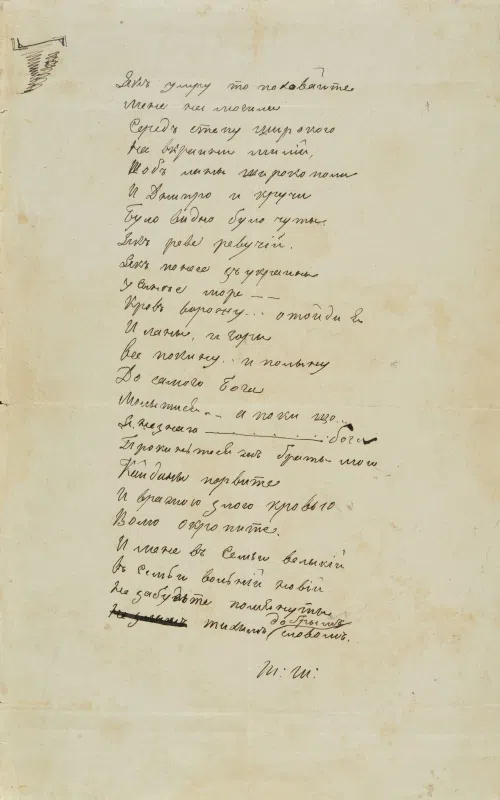 Якъ умру то поховайте
Мене на могили
Середъ степу широкого
На вкраини милій,
Щобъ ланы широкополи
И Днипро и кручи
Було видно було чуты.
Якъ реве ревучій.
Якъ понесе зъ украины
У синье море — —
Кровъ ворожу... отойди я
И ланы, и горы
Все покину.. и полыну
До самого Бога
Молытися.. а поки що...
Я незнаю бога
Кайданы порвите
И вражою злою кровью
Волю окропите.
И мене въ семьи велыкій
Въ семьи вольній новій
Не забудьте помянуты
тихимъ добрымъ словомъ.
Ш: Ш: